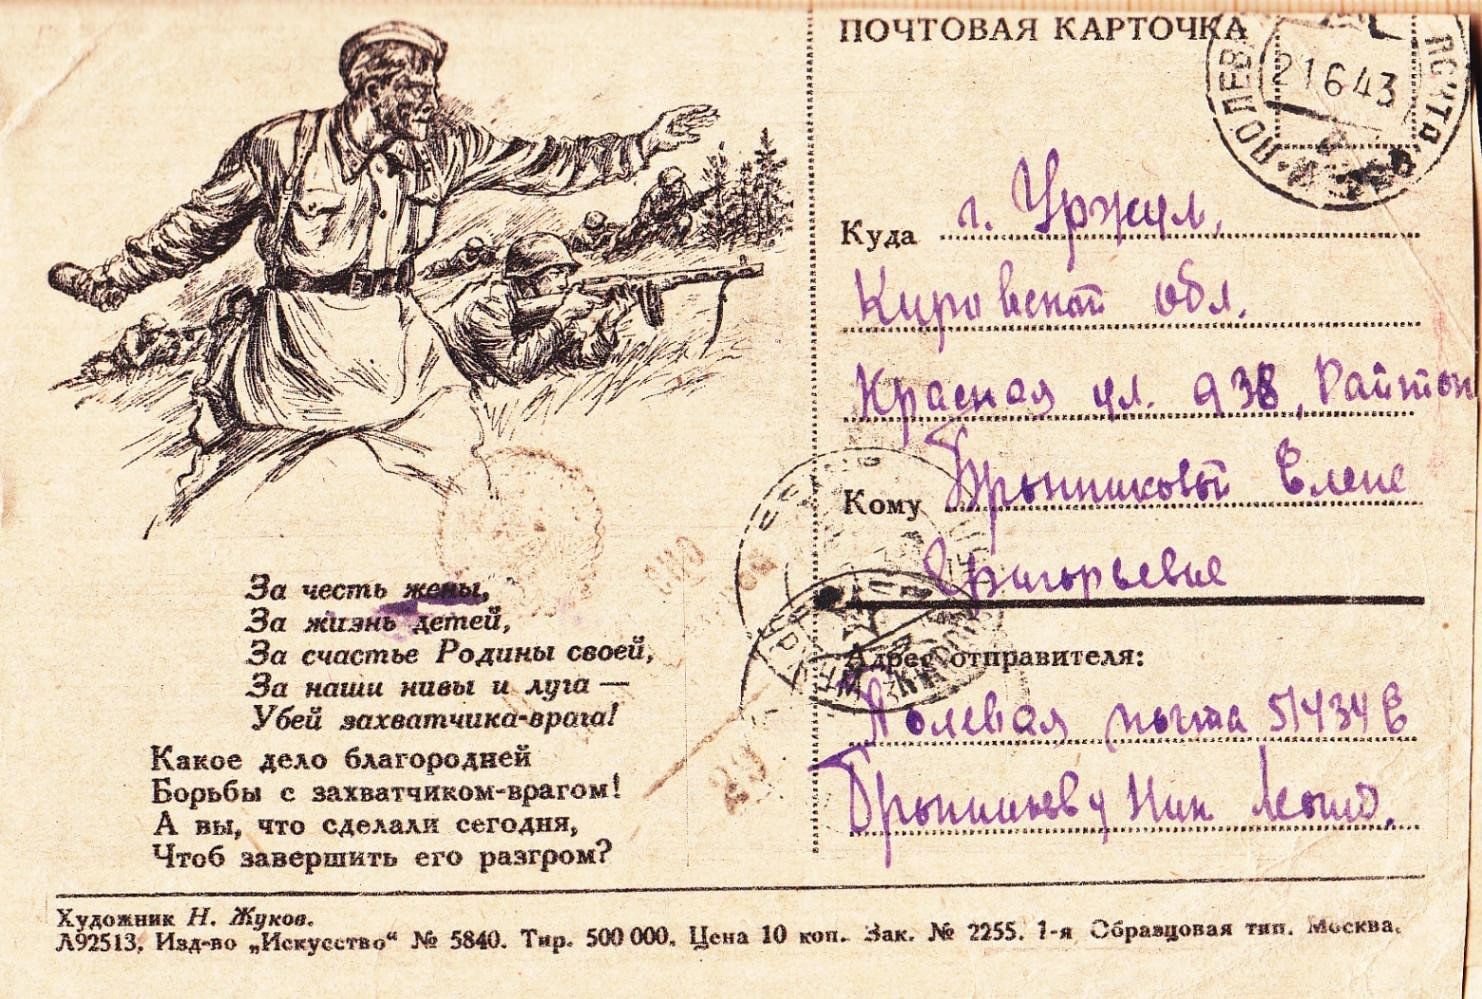 ПОЧТОВАЯ КАРТОЧКА
21643
Куда г. Уржум,
Кировской обл.
Красная ул. д 38,
Кому Елене
Григорьевне
Адрес отправителя:
Полевая почта 51434 Е
Ник
За честь жены,
За жизнь детей,
За счастье Родины своей,
За наши нивы и луга —
Убей захватчика-врага!
Какое дело благородней
Борьбы с захватчиком-врагом!
А вы, что сделали сегодня,
Чтоб завершить его разгром?
Художник Н. Жуков.
Л92513. Изд-во „Искусство“ № 5840. Тир. 500 000. Цена 10 коп. Зак. № 2255. 1-я Образцовая тип. Москва.